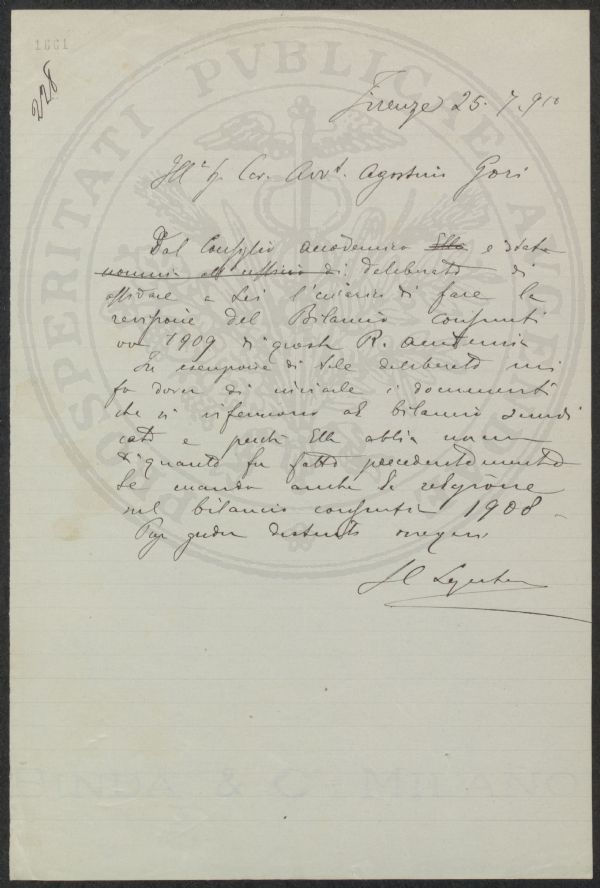 1661
228
Firenze 25. 7. 910
Ill. Cav. Avvt. Agostino Gori
Dal Consiglio accademico Ella è stata
nomina all'ufficio di deliberato di
affidare a Lei l'incarico di fare la
revisione del Bilancio consunti
vo 1909 di questa R. accademia
In esecuzione di tale deliberato mi
fo dover di inviarle i documenti
che si riferiscono al bilancio sindi
cato e perché Ella abbia norma
di quanto fu fatto precedentemente
Le manda anche la relazione
sul bilancio consuntivo 1908 -
Pregiatissimo distinti ossequi
Il Segretario
PROSPERITATI PVBLICAE AVGENDAE